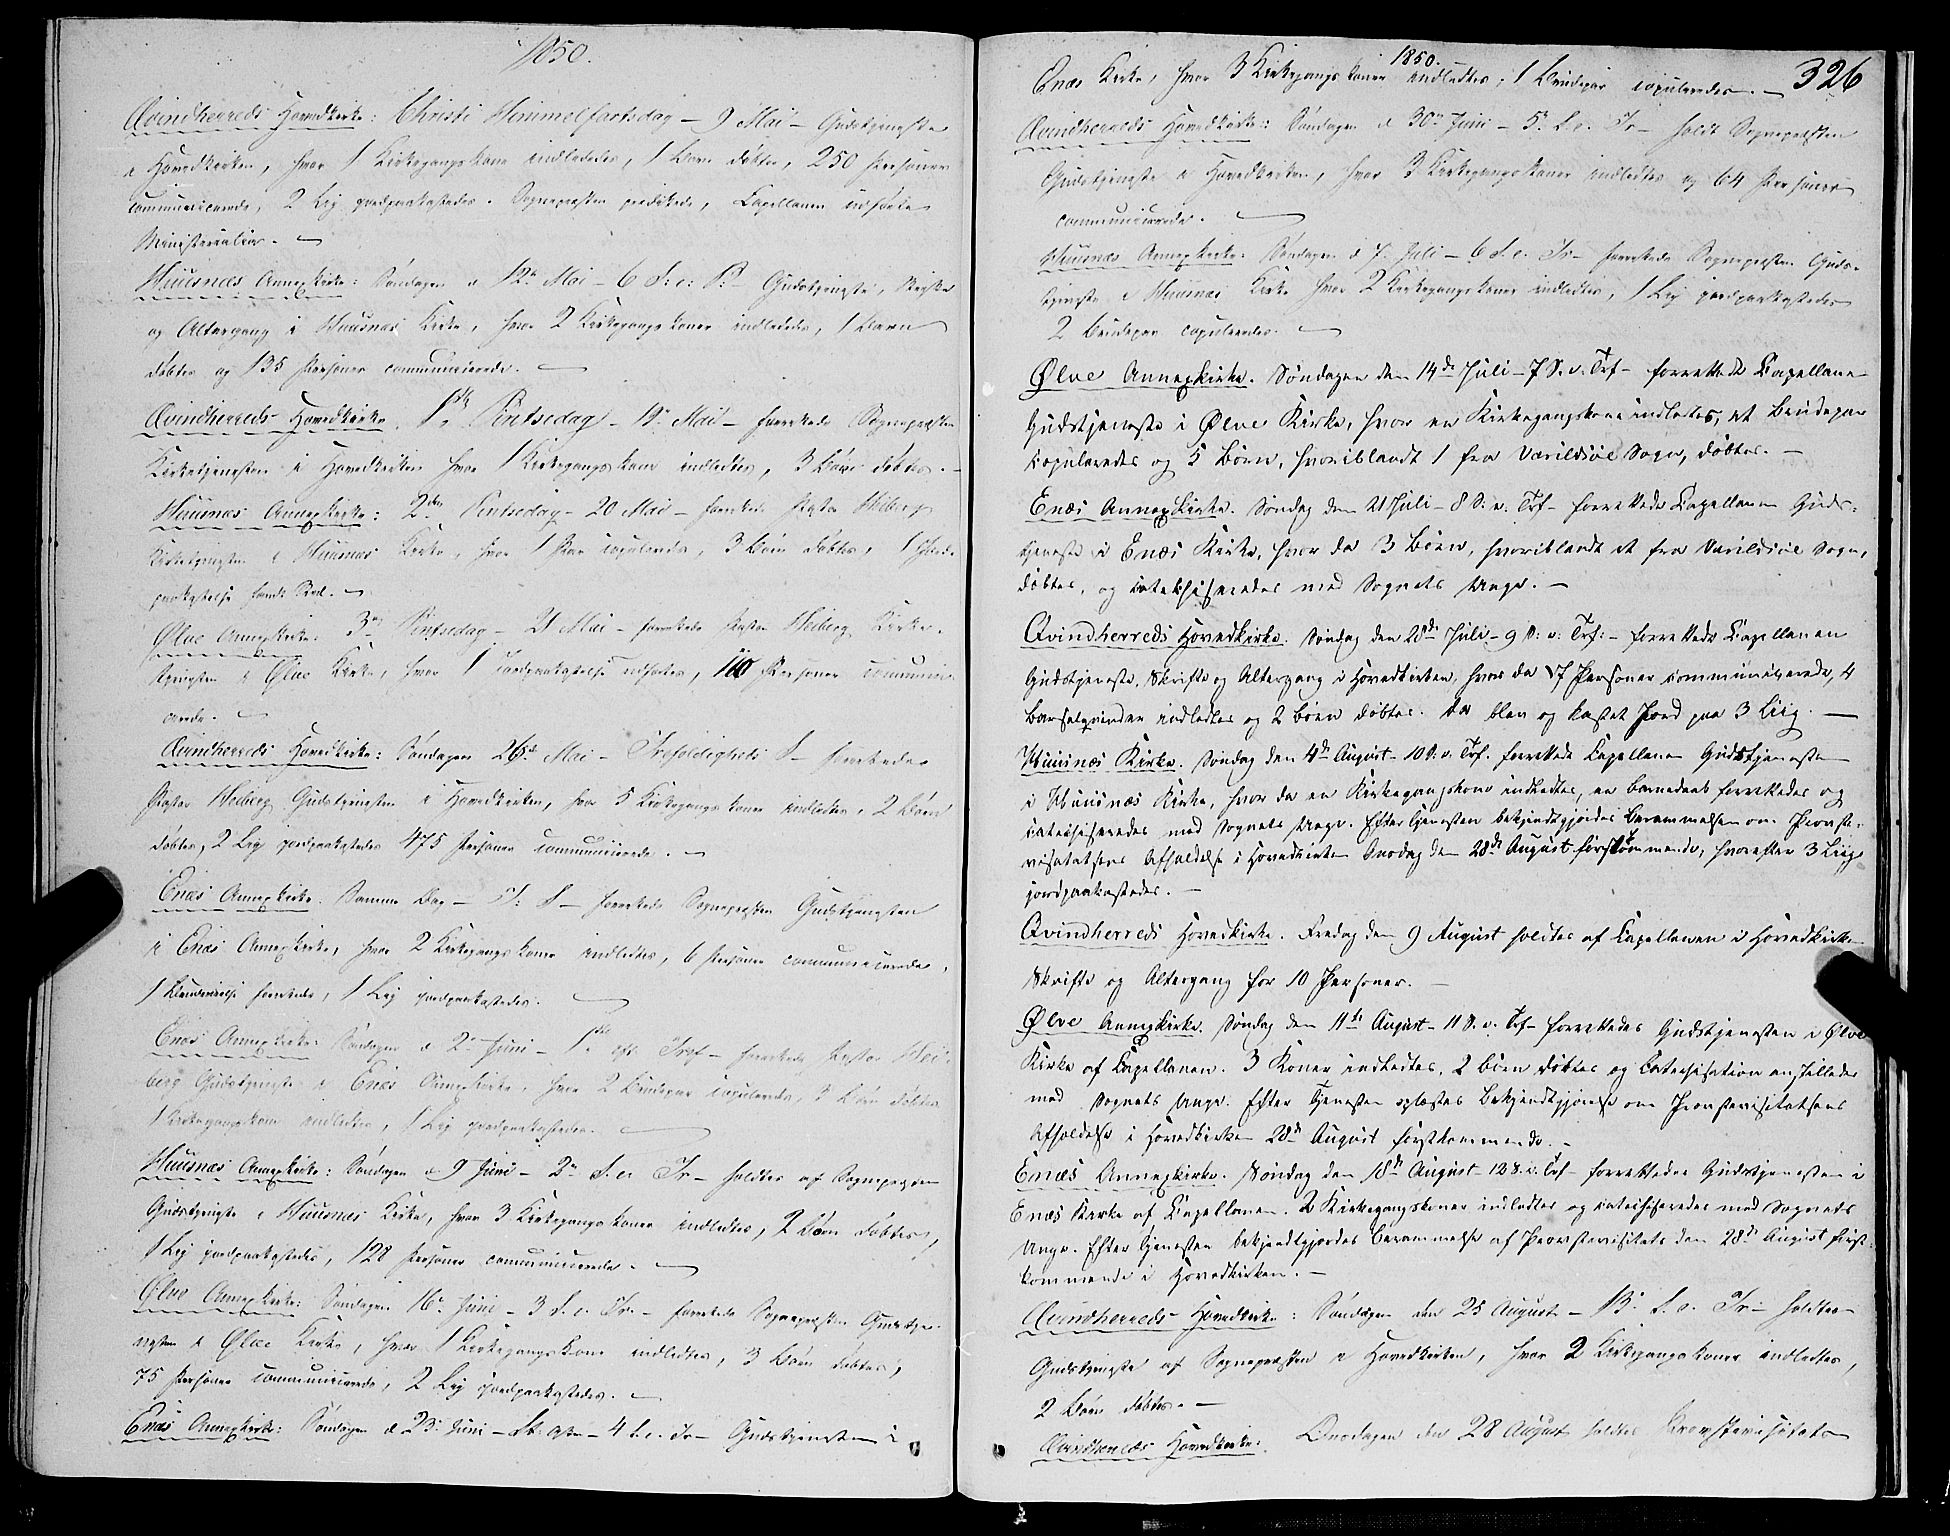 1850.
Qvindherreds Hovedkirke: Christi Himmelfartsdag – 9 Mai – Gudstjeneste
i Hovedkirken, hvor 1 Kirkegangskone indledtes, 1 Barn døbtes, 250 Personer
communicerede, 2 Lig jordpaakastedes. Sognepresten prædikede, Capellanen udførte
Ministerialia. –
Huusnæs Annexkirke: Søndagen d 12te Mai – 6 S. e. P. – Gudstjeneste, Skrifte
og Altergang i Huusnæs Kirke, hvor 2 Kirkegangskoner indledtes, 1 Barn
døbtes og 135 Personer communicerede. –
Qvindherreds Hovedkirke. 1ste Pintsedag – 19 Mai – forrettede Sognepresten
Kirketjenesten i Hovedkirken hvor 1 Kirkegangskone indledtes, 3 Børn døbtes. –
Huusnæs Annexkirke: 2den Pintsedag – 20 Mai – forrettede Pastor Heiberg
Kirketjenesten i Huusnæs Kirke, hvor 1 Par copuleredes, 3 Børn døbtes, 1 Jord-
paakastelse fandt Sted. –
Ølve Annexkirke. 3die Pintsedag – 21 Mai – forrettede Pastor Heiberg Kirke-
tjenesten i Ølve Kirke, hvor 1 Jordpaakastelse udførtes, 110 Personer communi-
cerede. –
Qvindherreds Hovedkirke: Søndagen 26de Mai – Trefoldigheds S – forrettede
Pastor Heiberg Gudstjenesten i Hovedkirken, hvor 5 Kirkegangskoner indledtes, 2 Børn
døbtes, 2 Lig jordpaakastedes 475 Personer communicerede. –
Enæs Annexkirke. Samme Dag – T. S – forrettede Sognepresten Gudstjenesten
i Enæs Annexkirke, hvor 2 Kirkegangskoner indledtes, 6 Personer communicerede,
1 forrettedes, 1 Lig jordpaakastedes. –
Enæs Annexkirke: Søndagen d 2 Juni – 1ste eft. Tref – forrettede Pastor Hei-
berg Gudstjeneste i Enæs Annexkirke, hvor 2 Brudepar copuleredes, 3 Børn døbtes
1 Kirkegangskone indledtes, 1 Lig jordpaakastedes. –
Huusnæs Annexkirke: Søndagen d 9 Juni – 2 S. e. Tr – holdtes af Sognepresten
Gudstjeneste i Huusnæs Kirke, hvor 3 Kirkegangskoner indledtes, 2 Børn døbtes,
1 Lig jordpaakastedes, 128 Personer communicerede. –
Ølve Annexkirke: Søndagen 16 Juni – 3 S. e. Tr. – forrettede Sognepresten Gudstje-
nesten i Ølve Kirke, hvor 1 Kirkegangskone indledtes, 3 Børn døbtes,
75 Personer communicerede, 2 Lig jordpaakastedes. –
Enæs Annexkirke: Søndagen d 23 Juni – – 4 S. e. Tr – Gudstjenesten i
1850.
326
Enæs Kirke, hvor 3 Kirkegangskoner indledtes, 1 Brudepar copuleredes. –
Qvindherreds Hovedkirke: Søndagen d 30 Juni – 5 S. e. Tr – holdt Sognepresten
Gudstjeneste i Hovedkirken, hvor 3 Kirkegangskoner indledtes og 64 Personer
communicerede. –
Huusnæs Annexkirke: Søndagen d 7 Juli – 6 S. e. Tr – forrettede Sognepresten Guds-
tjeneste i Huusnæs Kirke hvor 2 Kirkegangskoner indledtes, 1 Lig jordpaakastedes
2 Brudepar copuleredes. –
Ølve Annexkirke. Søndagen den 14de Juli – 7 S. e. Trf – forrettede Capellanen
Gudstjeneste i Ølve Kirke, hvor en Kirkegangskone indledtes, et Brudepar
copuleredes og 5 Børn, hvoriblandt 1 fra Varildsøe Sogn, døbtes. –
Enæs Annexkirke. Søndag den 21 Juli – 8 S. e. Trf – forrettede Capellanen Guds-
tjeneste i Enæs Kirke, hvor da 3 Børn, hvoriblandt et fra Varildsøe Sogn,
døbtes, og catechiseredes med Sognets Unge. –
Qvindherreds Hovedkirke. Søndag den 28de Juli – 9 S: e: Trf: – forrettede Capellanen
Gudstjeneste, Skrifte og Altergang i Hovedkirken, hvor da 57 Personer communicerede, 4
Barselqvinder indledtes og 2 Børn døbtes. Der blev og kastet Jord paa 3 Liig. –
Huusnæs Kirke. Søndag den 4de August – 10 S. e. Trf. forrettede Capellanen Gudstjenesten
i Huusnæs Kirke, hvor da en Kirkegangskone indledtes, en Barnedaab forrettedes og
catechiseredes med Sognets Unge. Efter Tjenesten bekjendtgjordes Berammelsen om Provste-
visitatsens Afholdelse i Hovedkirken Onsdag den 28de August førstkommende, hvorefter 3 Liig
jordpaakastedes. –
Qvindherreds Hovedkirke. Fredag den 9 August holdtes af Capellanen i Hovedkirken
Skrifte og Altergang for 10 Personer. –
Ølve Annexkirke. Søndag den 11te August – 11 S. e. Trf – forrettedes Gudstjenesten i Ølve
Kirke af Capellanen. 3 Koner indledtes, 2 Børn døbtes og Catechisation anstilledes
med Sognets Unge. Efter Tjenesten oplæstes Bekjendtgjørelse om Provstevisitatsens
Afholdelse i Hovedkirken 28de August førstkommende. –
Enæs Annexkirke. Søndag den 18de August – 12 S. e. Trf – forrettedes Gudstjenesten i
Enæs Kirke af Capellanen. 2 Kirkegangskoner indledtes og catechiseredes med Sognets
Unge. Efter Tjenesten bekjendtgjordes Berammelse af Provstevisitats den 28de August først-
kommende i Hovedkirken. –
Qvindherreds Hovedkirke: Søndagen den 25 August – 13 S. e. Tr – holdtes
Gudstjeneste af Sognepresten i Hovedkirken, hvor 2 Kirkegangskoner indledtes,
2 Børn døbtes. –
Qvindherreds Hovedkirke. Onsdagen den 28 August holdtes Provstevisitats